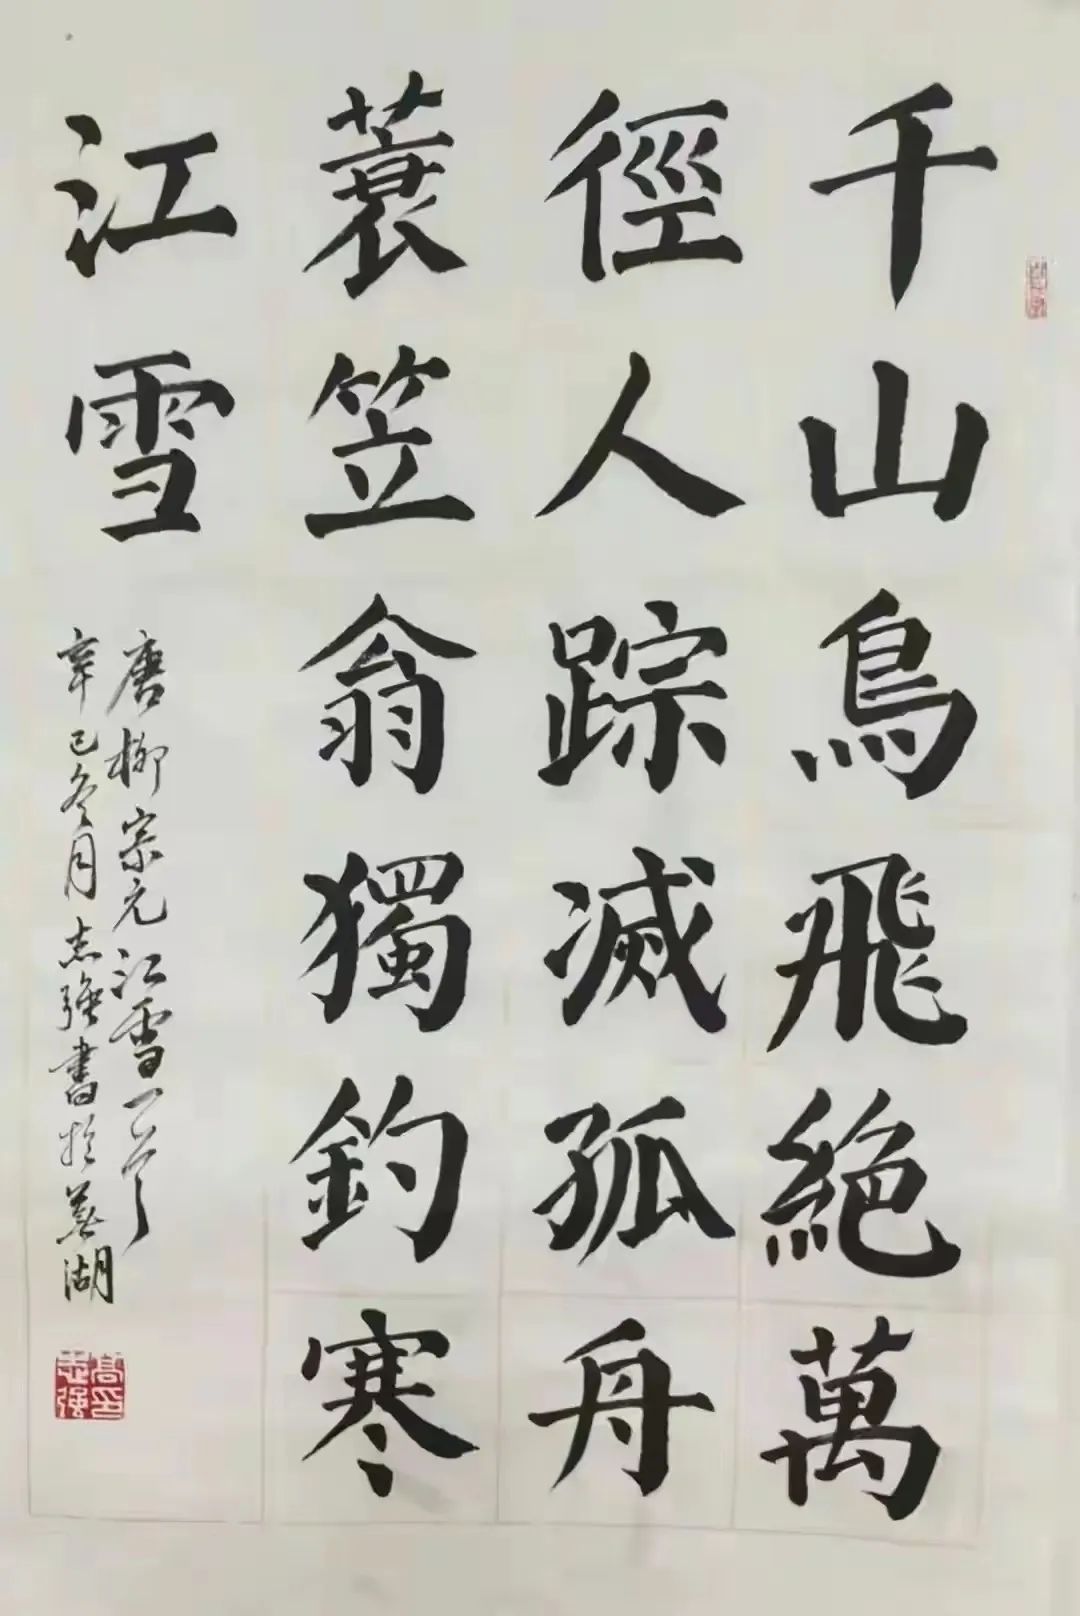 千山鳥飛絶萬
徑人踪滅孤舟
蓑笠翁獨釣寒
江雪
唐柳宗元江雪一首
辛已冬月志強書於蕪湖
高志強印